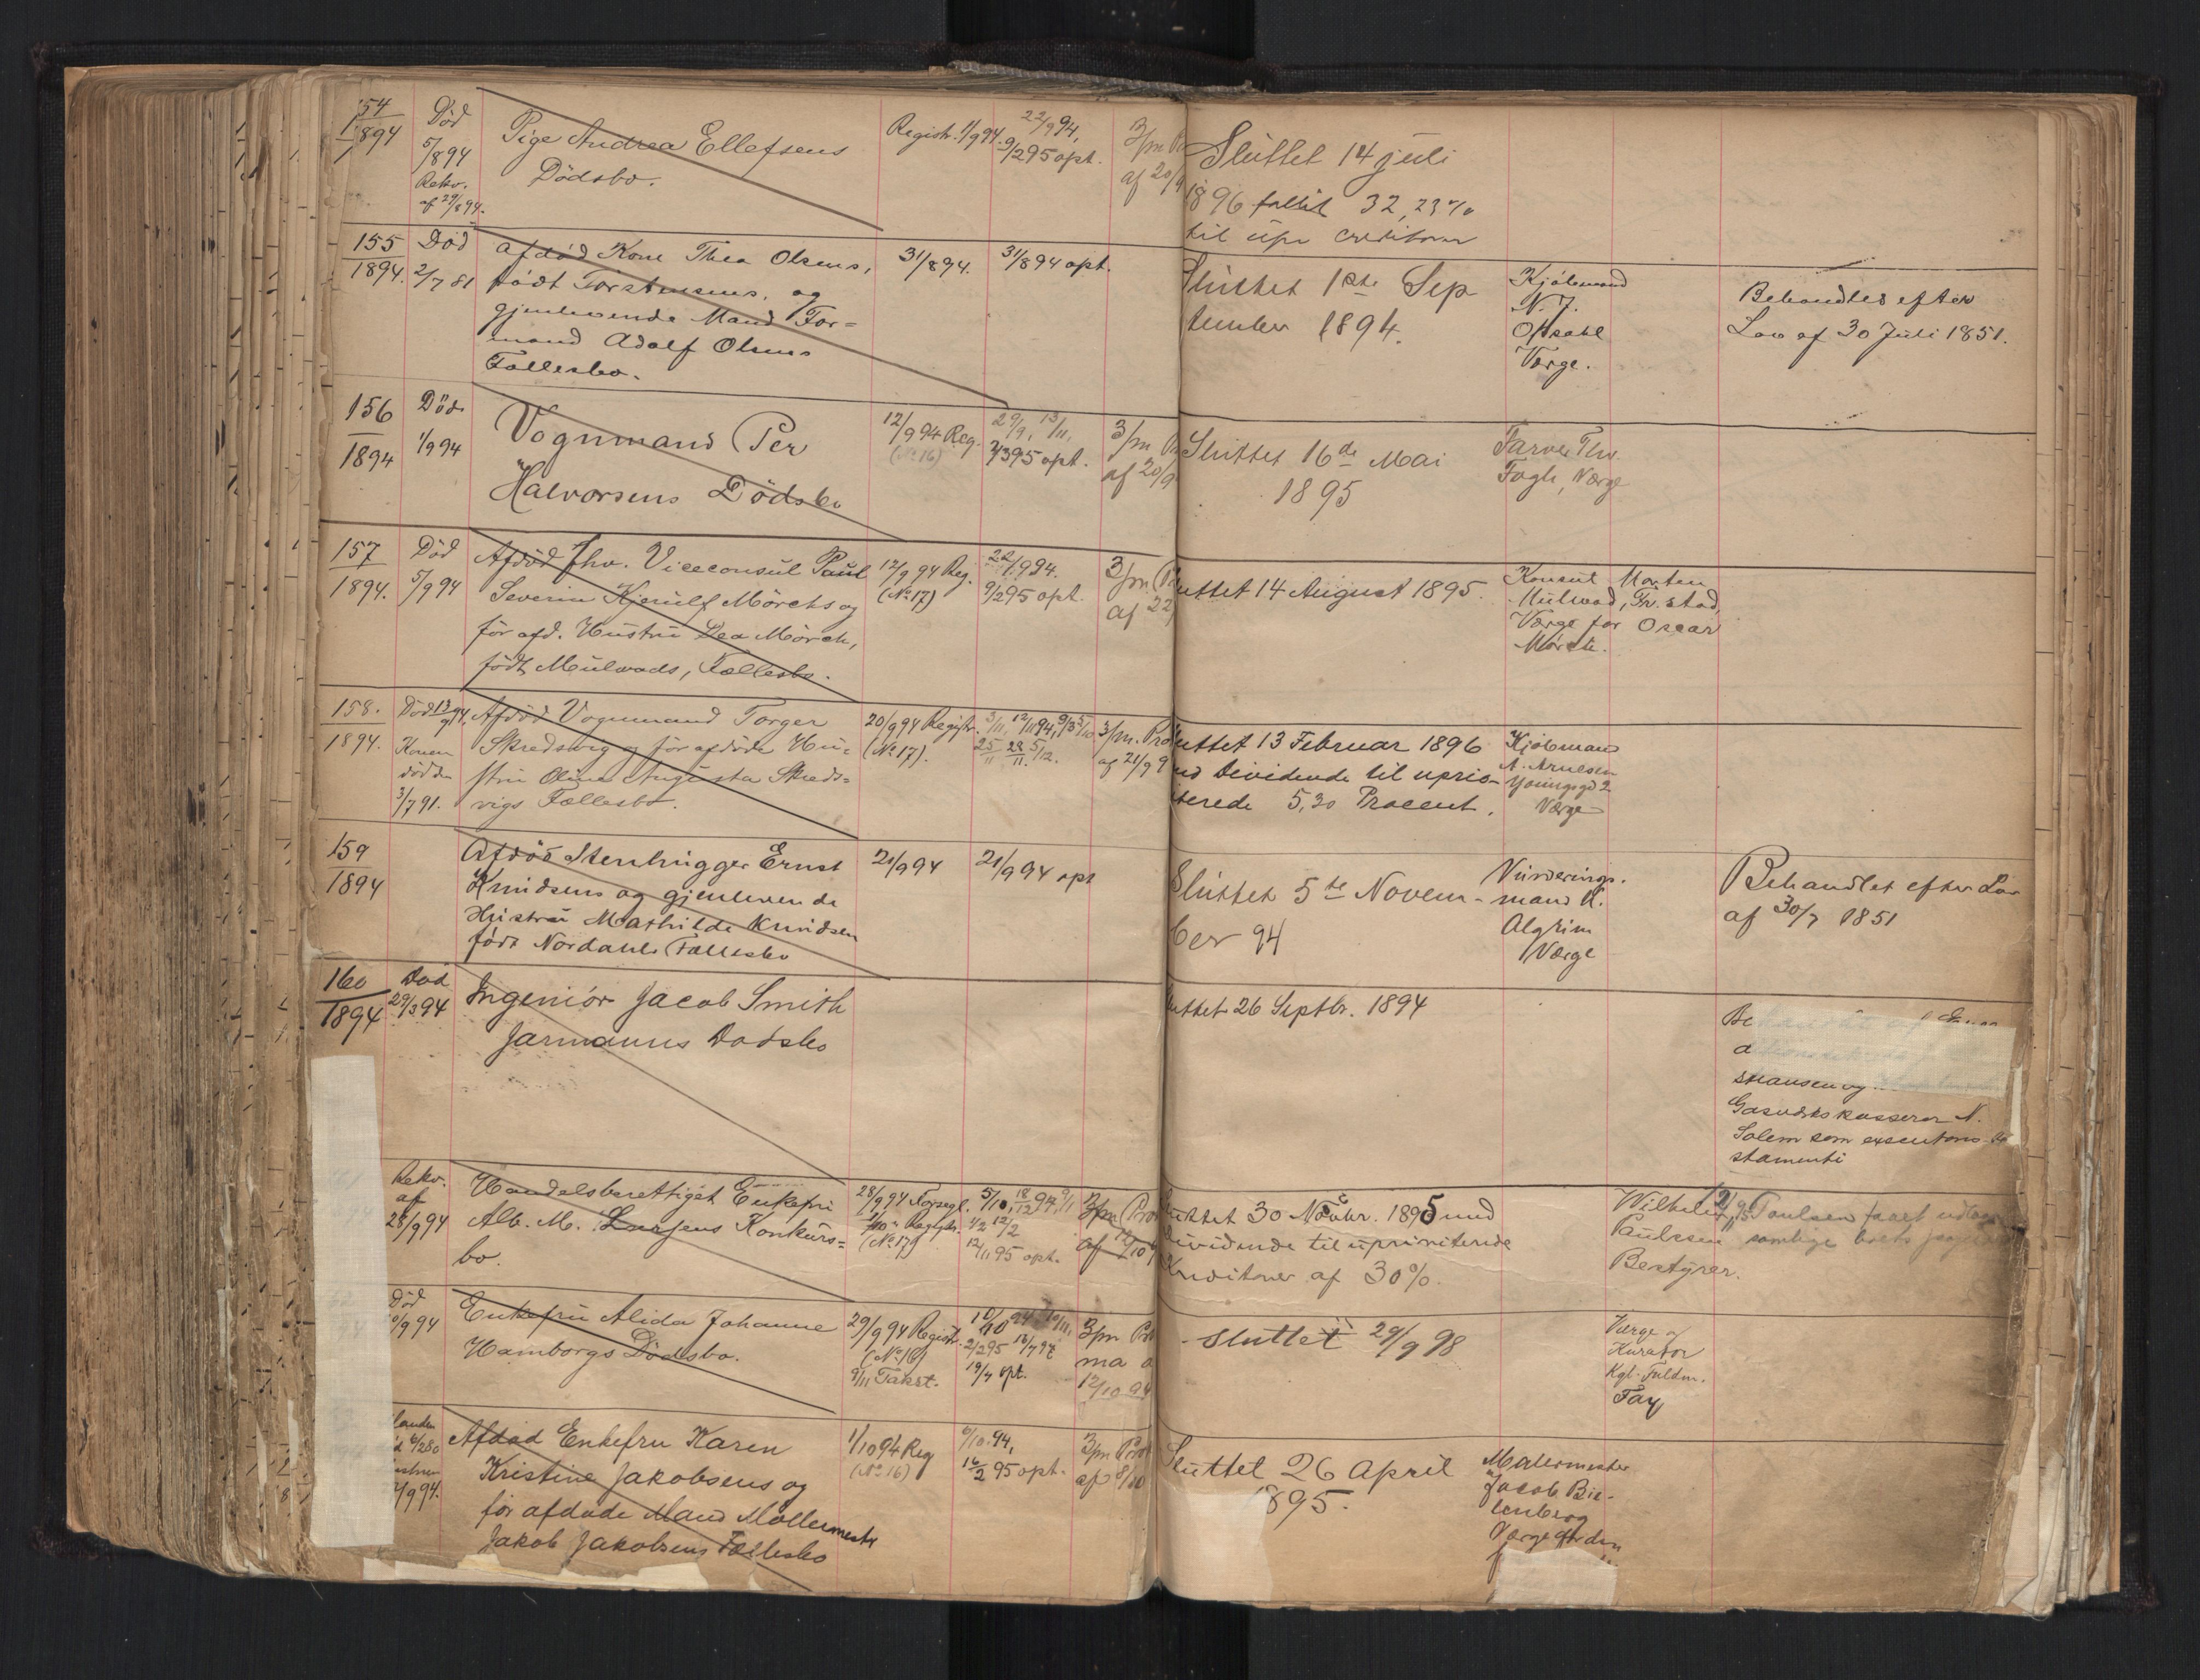 154
1894
Död
5/8 94
Rekv.
af 29/8 94.
Pige Andrea Ellefsens
Dödsbo.
Registr. 1/9 94.
22/9 94,
9/2 95 opt.
3/m Pr
af 20/9
Sluttet 14 juli
1896 fallit 32,23 %
til upr creditorer
155
1894.
Död
2/7 81
Afdöd Kone Thea Olsens,
födt Torstensens, og
gjenlevende Mand For=
mand Adolf Olsens
Fællesbo.
31/8 94.
31/8 94 opt.
Sluttet 1ste Sep
tember 1894.
Kjöbmand
N. J.
Opsahl
Værge.
Behandles efter
Lov af 30 Juli 1851.
156
1894
Död
1/9 94
Vognmand Per
Halvorsens Dödsbo
12/9 94 Reg.
(No 16)
29/9, 13/11,
2/3 95 opt.
3/m Pr
af 20/9
Sluttet 16de Mai
1895
Farver Thv.
Fogh, Værge
157
1894.
Död
5/9 94
Afdöd fhv. Viceconsul Paul
Severin Kjerulf Mörchs og
för afd. Hustru Dea Mörch,
födt Mulvads, Fællesbo.
12/9 94 Reg.
(No 17)
22/9 94.
9/2 95 opt.
3/m. Pr
af 22
uttet 14 August 1895.
Konsul Morten
Mulvad, Fr. stad,
Værge for Oscar
Mörch.
158.
1894.
Död 13/9 94.
Konen
död den
3/7 91.
Afdöd Vognmand Torger
Skredsvig og för afdöde Hu=
stru Oline Augusta Skreds=
vigs Fællesbo.
20/9 94 Registr.
(No 17).
3/m. Pro
af 21/9 9
uttet 13 Februar 1896
ed Dividende til uprio-
terede 5,30 Procent.
Kjöbmand
A. Arnesen
Youngsgd 2
Værge
159
1894
Afdöd Stenhugger Ernst
Knudsens og gjenlevende
Hustru Mathilde Knudsen
födt Nordahls Fællesbo
21/9 94
21/9 94 opt
Sluttet 5te Novem-
ber 94
Vurderings-
mand K.
Algrim
Værge
Behandlet efter Lov
af 30/7 1851
160
1894
Död
29/3 94
Ingeniör Jacob Smith
Jarmanns Dödsbo
uttet 26 Septbr. 1894
Be
a
Gasværkskasserer N.
Solem som executores te
stamenti
Rekv.
af
28/9 94
Handelsberettiget Enkefru
Alb. M. Larsens Konkurs=
bo.
28/9 94 Forsegl.
1/10 " Registr.
(No 17)
5/10, 18/12 94, 9/1
1/2 12/2
12/11 95 opt.
3/m Pro
af 12/10 9
uttet 30 Novbr. 1895 med
Dividende til upriviterede
Kreditorer af 30 %.
Wilhelm
Paulssen
Bestyrer.
Paulsen faaet udlagt
samtlige boets
Död
/9 94
Enkefru Alida Johanne
Hamborgs Dödsbo.
29/9 94 Registr.
(No 16)
9/11 Takst.
2/2 95 16/7 97
19/7 opt.
3/m Pro
ma a
12/10 94
Sluttet 29/9 98
Værge og
Kurator
Kgl. Fuldm.
Fay
Manden
d 6/2 80
ustruen
/9 94.
Afdöd Enkefru Karen
Kristine Jakobsens og
för afdöde Mand Möllermestr
Jakob Jakobsens Fællesbo
1/10 94 Reg
(No 16)
6/10 94,
16/2 95 opt.
3/m Pro
af 8/10
Sluttet 26 April
1895.
Malermester
Jacob Bie-
lenberg
Værge for den